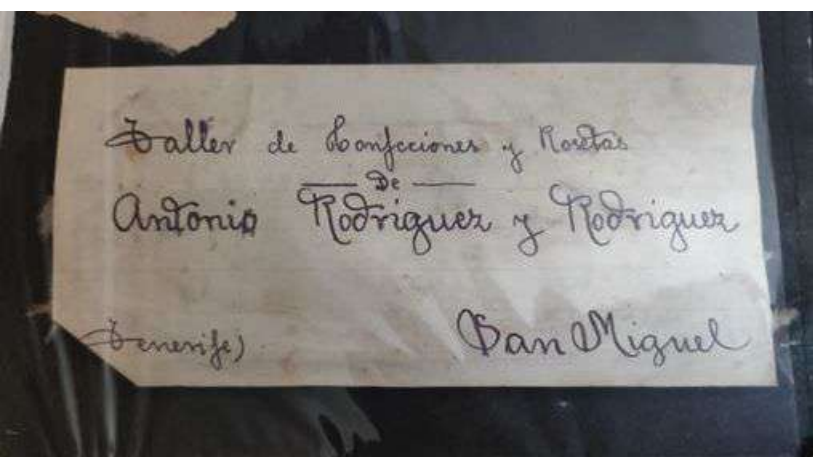 Taller de Confecciones y Rosetas
— De —
Antonio Rodriguez y Rodriguez
Tenerife) San Miguel